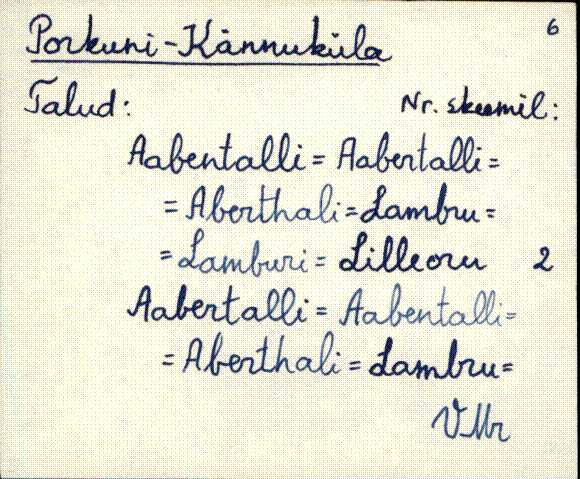 6
Porkuni-Kännuküla
Talud: Nr. skeemil:
Aabentalli = Aabertalli =
= Aberthali = Lambru =
= Lamburi = Lilleoru 2
Aabertalli = Aabentalli =
= Aberthali = Lambru =
VMr